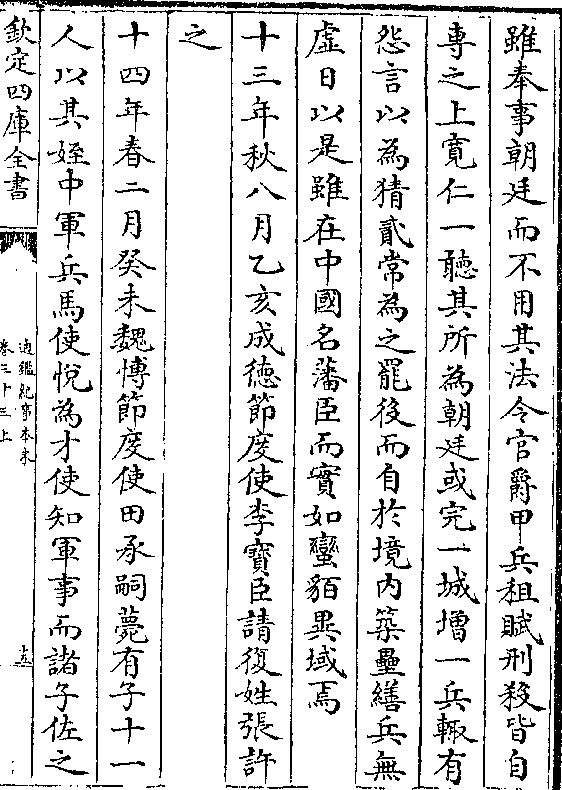 雖奉事朝廷而不用其法令官爵甲兵租賦刑殺皆自
専之上寛仁一聽其所為朝廷或完一城增一兵輙有
怨言以為猜貳常為之罷役而自於境内築壘繕兵無
虛日以是雖在中國名藩臣而實如蠻貊異域焉
十三年秋八月乙亥成徳節度使李寳臣請復姓張許
之
十四年春二月癸未魏博節度使田承嗣薨有子十一
人以其姪中軍兵馬使悅為才使知軍事而諸子佐之
欽定四庫全書
通鑑紀事本末
卷三十三上
十五